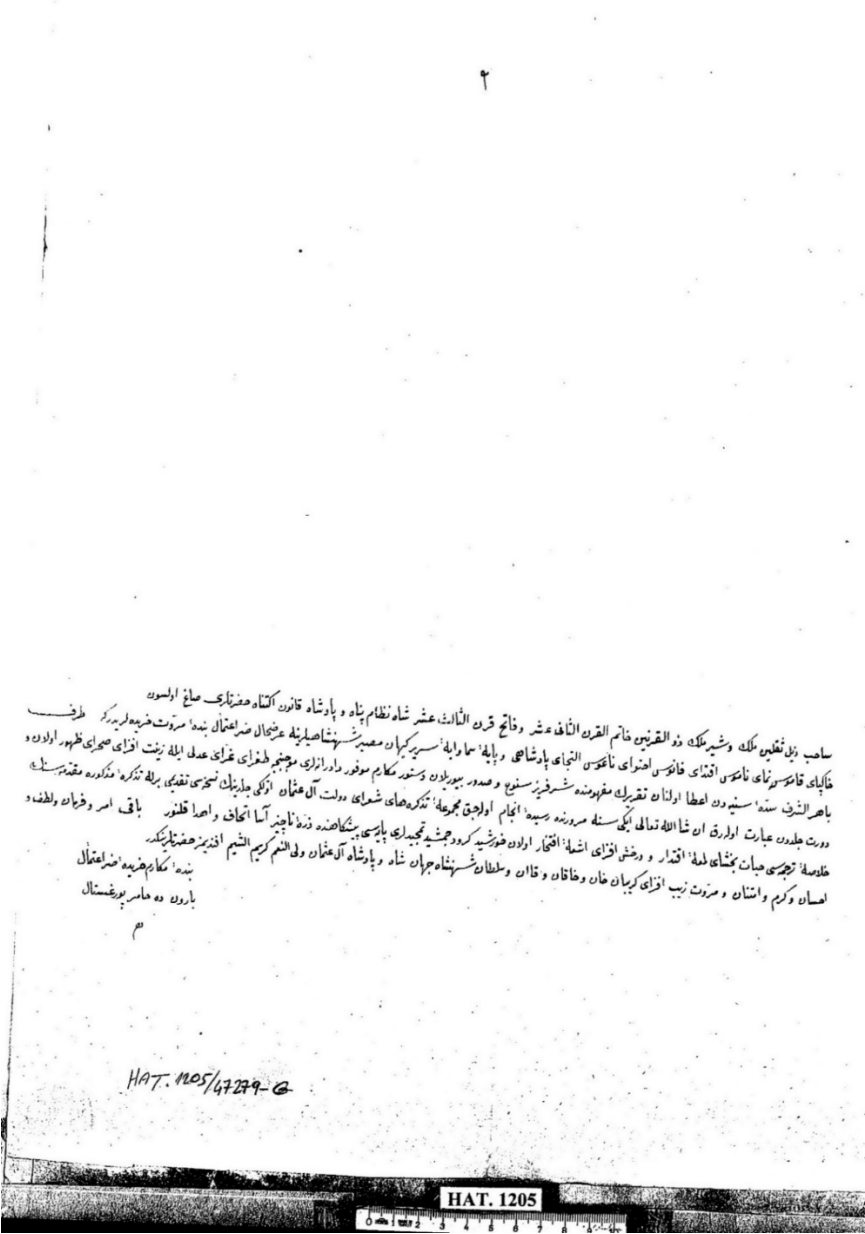 ٩
صاحب ذيل ثقلين ملك وشير ملك ذو القرنين خاتم القرن الثانى عشر وفاتح قرن الثالث عشر شاه نظام پناه و پادشاه قانون اكتناه حضرتلرى صاغ اولسون
خاكپاى قاموس نماى ناموس اقتداى فانوس احتواى ناغوس التجاى پادشاهى وپايهٔ سما وايهٔ سرير كيهان مصير شهنشاهيلرينه عرضحال ضراعتمآل بندهٔ مروت خريده لريدركه طرف
باهر الشرف سدهٔ سنيه دن اعطا اولنان تقريرك مفهومنده شرفريز سنوح و صدور بيوريلان دستور مكارم موفور داورانه لرى موجبنجه طغراى غراى عدلى ايله زينت افزاى صحراى ظهور اولان و
دورت جلددن عبارت اوله رق ان شا الله تعالى ايكى سنه مرورنده رسيدهٔ انجام اوله جق مجموعهٔ تذكره هاى شعراى دولت آل عثمان اولكى جلدينك نسخه سى تقديمى برله تذكرهٔ مذكوره مقدمه سنك
خلاصهٔ ترجمه سى حيات بخشاى لمعهٔ اقتدار و درخش افزاى اشعهٔ افتخار اولان خورشيد كرو وجمشيد تمجيدلرى پارسى پيشكاهنده ذرهٔ ناچيز آسا اتحاف واهدا قلنور باقى امر وفرمان ولطف و
احسان وكرم وامتنان و مروت زيب افزاى كريمان خان وخاقان و قاآن وسلطان شهنشاه جهان شاه و پادشاه آل عثمان ولى النعم كريم الشيم افنديمز حضرتلرينكدر
بندهٔ مكارم خريدهٔ ضراعتمآل
بارون ده هامر پورغستال
HAT. 1205/47279-G
HAT. 1205
0 1 2 3 4 5 6 7 8